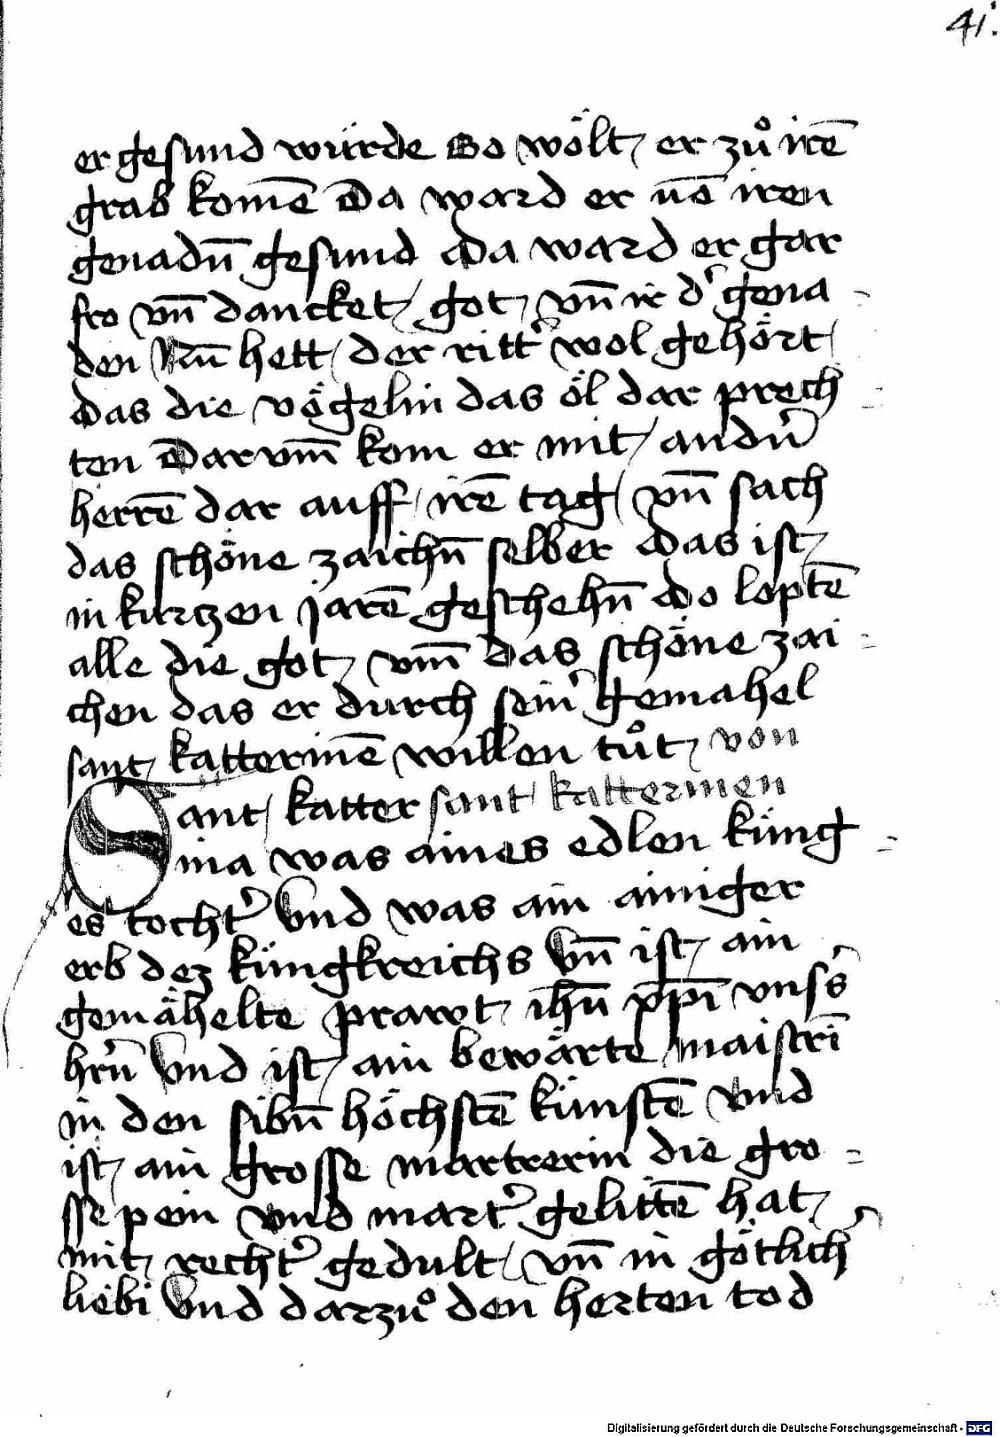 41.
er gesund würde So wölt er zů irē
grab komē Da ward er vō iren
genadn̄ gesund da ward er gar
fro vn̄ dancket got vn̄ ir d' gena-
den Nun hett der ritt' wol gehört
das die vögelin das öl dar prech-
ten Darvm̄ kom er mit andn̄
herrē dar auff irē tag vn̄ sach
das schöne zaichn̄ selber das ist
in kurtzen jarē geschehn̄ do loptē
alle die got vm̄ das schöne zai-
chen das er durch sein' gemahel
sant katterinē willen tůt von
Sant katter sant katterinen
ina was aines edlen küng-
es tocht' Vnd was ain ainiger
erb dez küngkreichs Vn̄ ist ain
gemähelte prawt ihū xp̄i vnss'
hrn̄ Vnd ist ain bewärte maistrī
in den sibn̄ höchstē künstē vnd
ist ain grosse martrerin die gro-
sse pein vnd mart' gelittē hat
mit recht' gedult vn̄ in götlich'
liebi Vnd darzů den herten tod
Digitalisierung gefördert durch die Deutsche Forschungsgemeinschaft - DFG